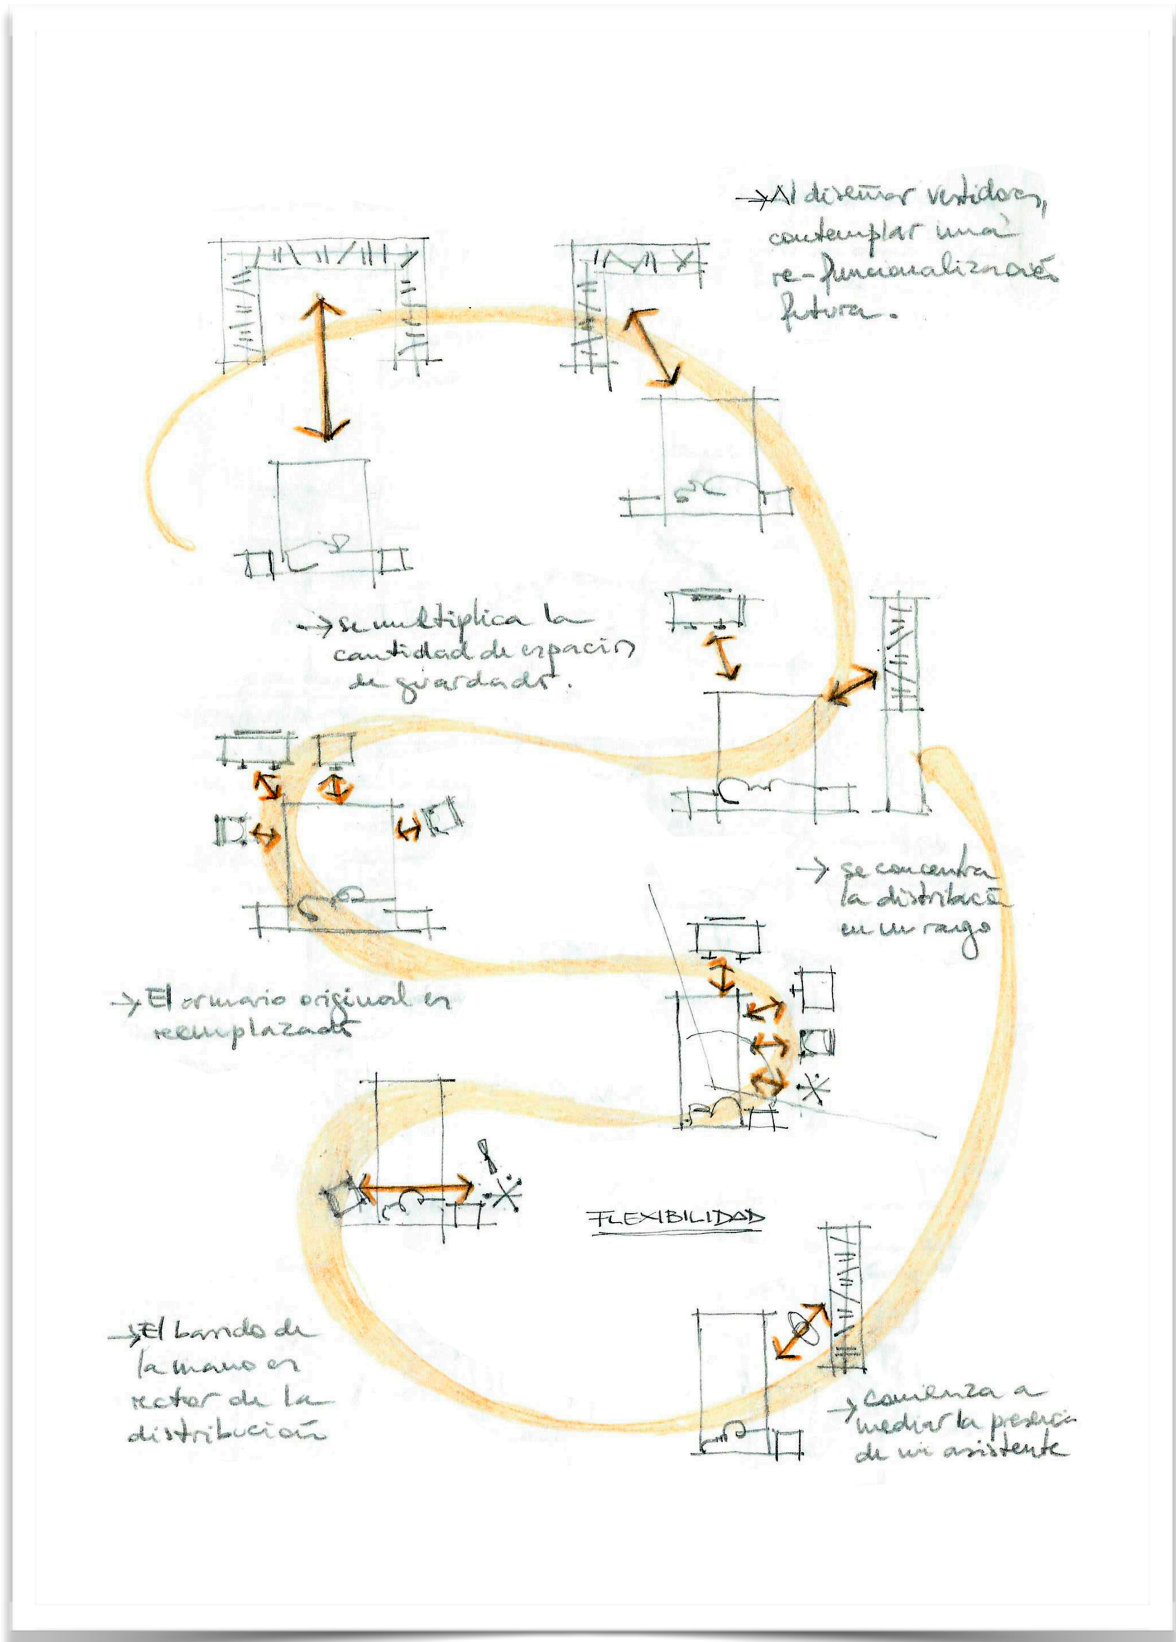 → Al diseñar vestidores,
contemplar una
re-funcionalización
futura.
→ se multiplica la
cantidad de espacios
de guardado.
→ se concentra
la distribución
en un rango
→ El armario original es
reemplazado
FLEXIBILIDAD
→ El barrido de
la mano es
rector de la
distribución
→ comienza a
mediar la presencia
de un asistente